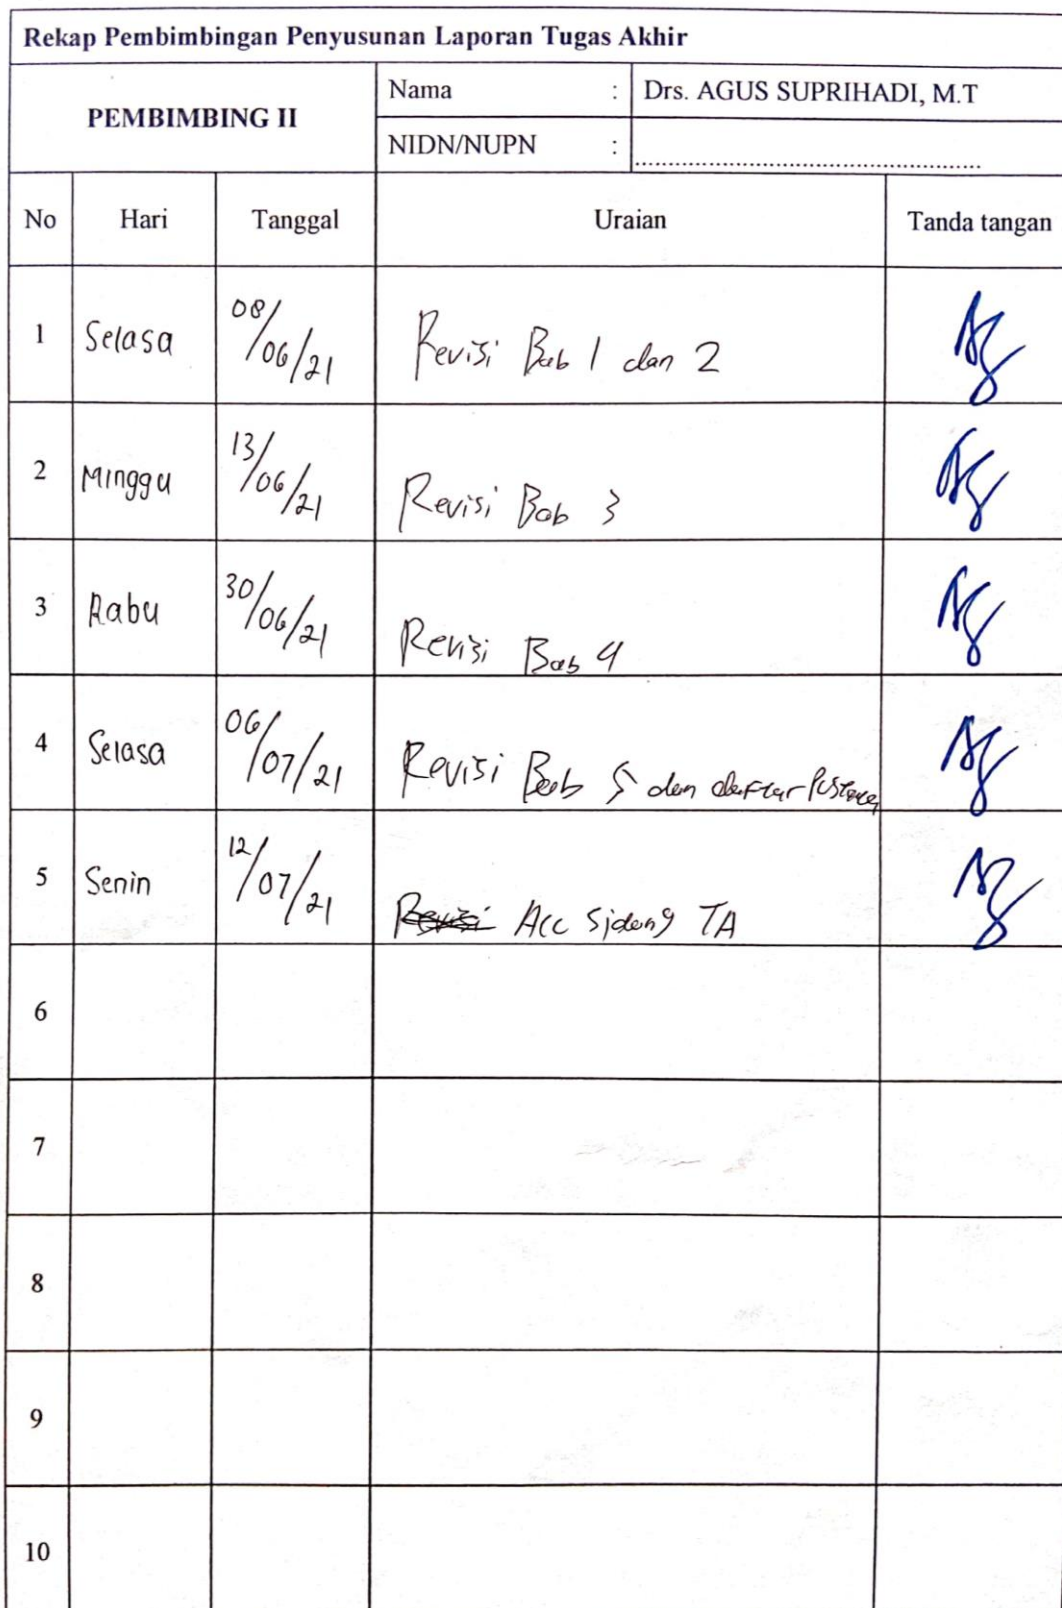 Rekap Pembimbingan Penyusunan Laporan Tugas Akhir
PEMBIMBING II
Nama : Drs. AGUS SUPRIHADI, M.T
NIDN/NUPN : ................................................
No Hari Tanggal Uraian Tanda tangan
1 Selasa 08/06/21 Revisi Bab 1 dan 2
2 Minggu 13/06/21 Revisi Bab 3
3 Rabu 30/06/21 Revisi Bab 4
4 Selasa 06/07/21 Revisi Bab 5 dan daftar Pustaka
5 Senin 12/07/21 Revisi Acc Sidang TA
6
7
8
9
10